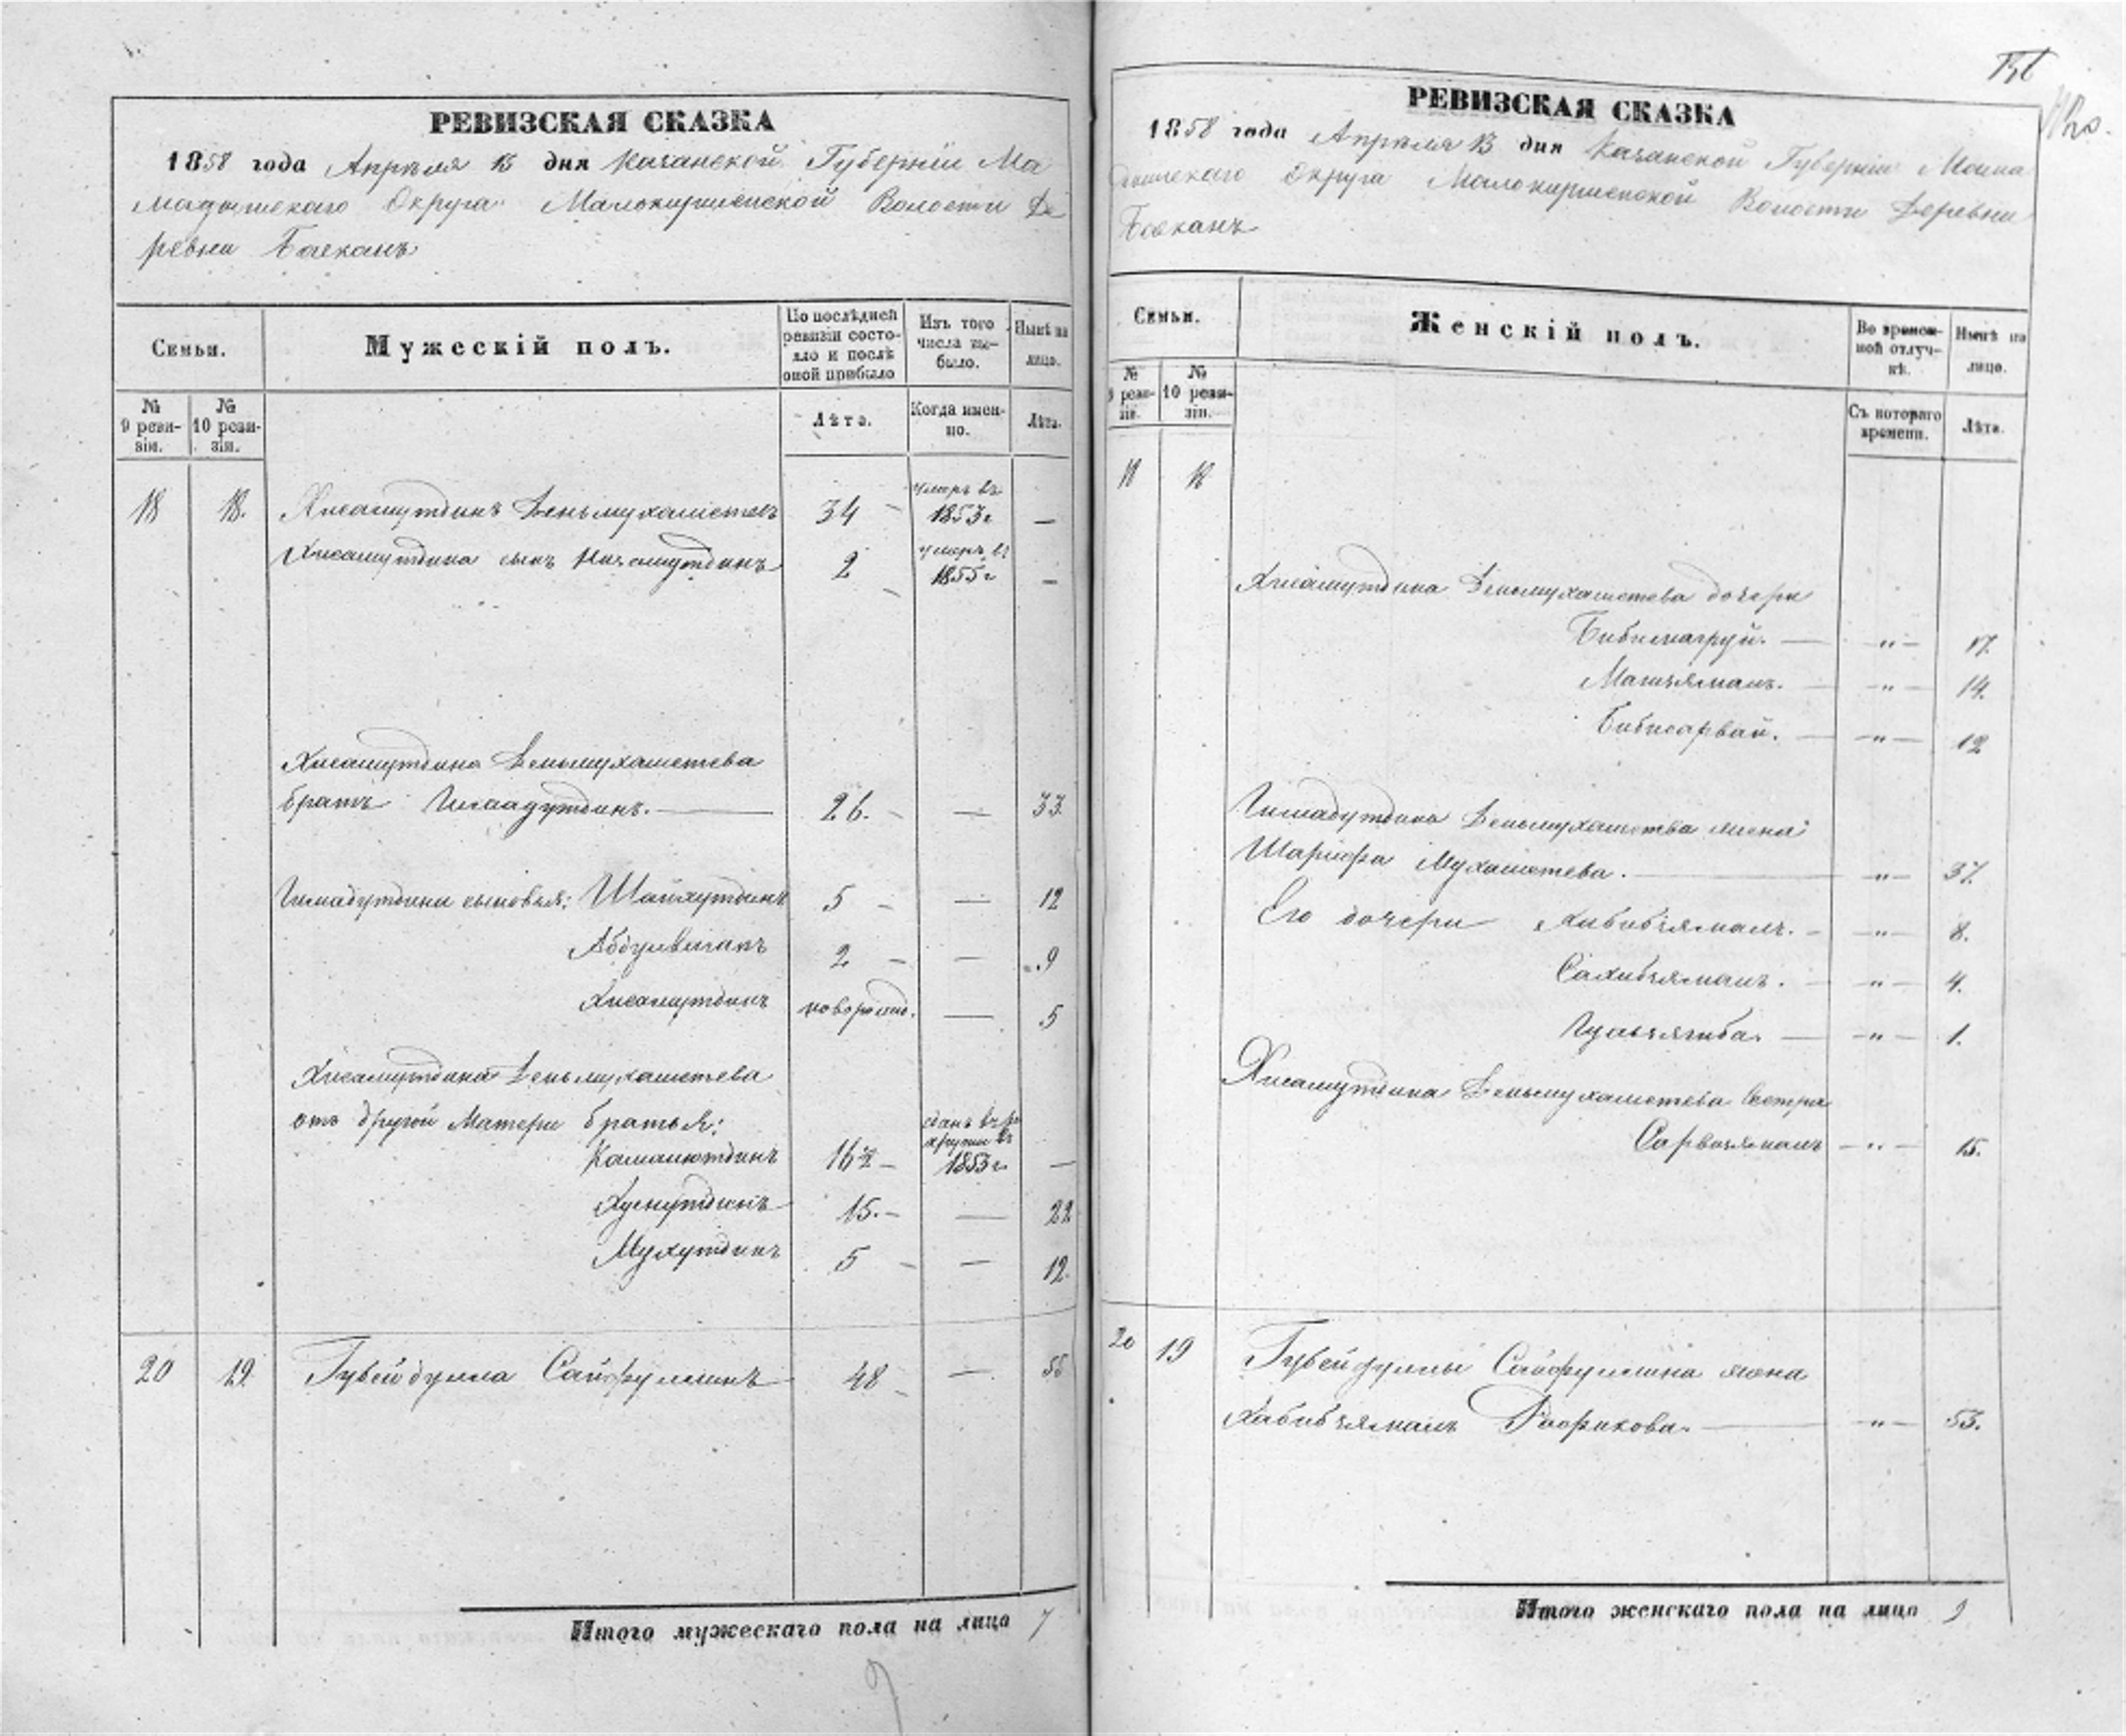 РЕВИЗСКАЯ СКАЗКА
1858 года Апреля 13 дня Казанской Губерніи Ма
мадышскаго Округа Малокирменской Волости Де
ревни Баеканъ
Семьи.
Мужескій полъ.
По послѣдней ревизіи состояло и послѣ оной прибыло
Изъ того числа выбыло.
Нынѣ на лицо.
№ 9 ревизіи.
№ 10 ревизіи.
Лѣта.
Когда именно.
Лѣта.
18 18. Хисамутдинъ Деньмухаметевъ 34 - умеръ въ 1853 г —
Хисамутдина сынъ Низамутдинъ 2 - умеръ въ 1855 г —
Хисамутдина Деньмухаметева
братъ Гимадутдинъ. — 26. - — 33.
Гимадутдина сыновья: Шайхутдинъ 5 - — 12
2 - — 9
Хисамутдинъноворожд. — 5
Хисамутдина Деньмухаметева
отъ другой Матери братья:
Камалютдинъ 16½ - сданъ въ рекруты въ 1853 г —
Хуснутдинъ 15. - — 22
Мухутдинъ 5 - — 12.
20 19. Губейдулла Сайфуллинъ 48 - — 55
Итого мужескаго пола на лицо 7
РЕВИЗСКАЯ СКАЗКА
1858 года Апреля 13 дня Казанской Губерніи Мама
дышскаго Округа Малокирменской Волости Деревни
Баеканъ
Семьи.
Женскій полъ.
Во временной отлучкѣ.
Нынѣ на лицо.
№ 9 ревизіи.
№ 10 ревизіи.
Съ котораго времени.
Лѣта.
18 18
Хисамутдина Деньмухаметева дочери
— „ — 17.
— „ — 14.
Бибисарвай. — „ — 12
Гимадутдина Деньмухаметева жена
Шарифа Мухаметева. — „ — 37.
Его дочери Хабибзямалъ. - „ — 8.
Сахибзямалъ. - „ — 4.
— „ — 1.
Хисамутдина Деньмухаметева сестра
Сарвизямалъ — „ — 15.
20 19 Губейдуллы Сайфуллина жена
Хабибзямалъ — „ — 53.
Итого женскаго пола на лицо 9